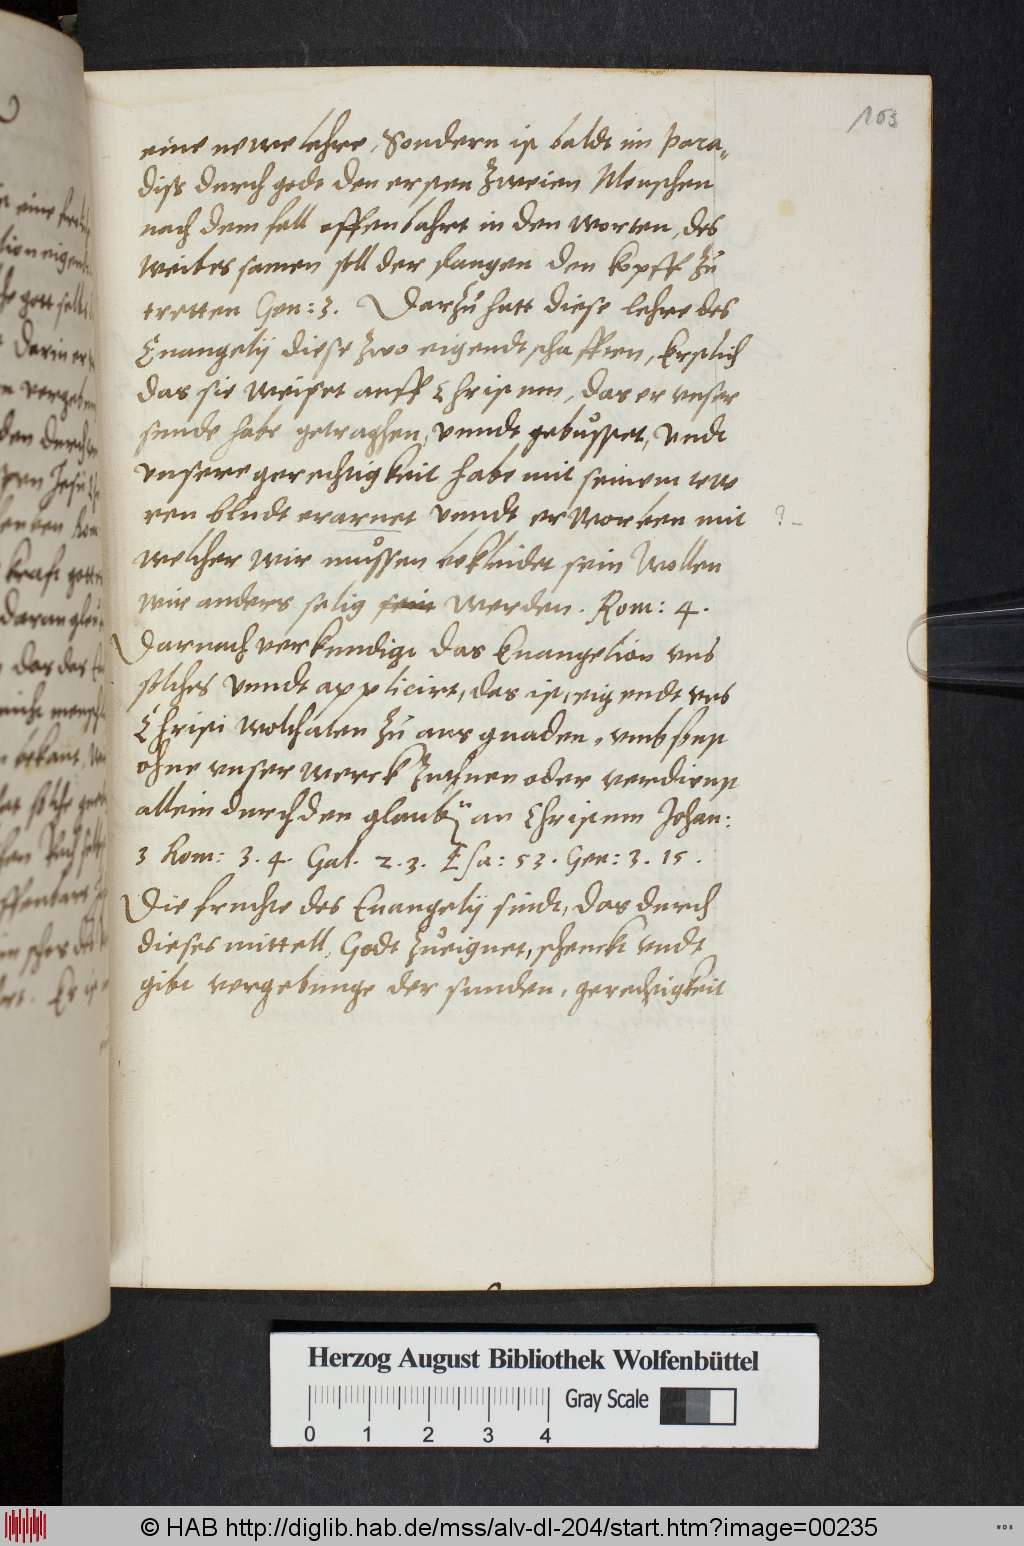 103
eine newe lehre, Sondern ist baldt im Para„
diss durch godt den ersten Zweien Menschen
nach dem fall offenbahrt in den worten, des
weibes samen soll der slangen den kopff Zů
tretten Gen: 3. Darzů hatt diese lehre des
Euangelij diese zwo eigendtschafften, Erstlich
das sie weiset auff Christum, das er vnser
sunde habe getraghen, vnndt gebůsset, vndt
vnsere gerechtigkeit habe mit seinem tew
ren bludt erarnet vnndt erworben mit
?-
welcher wir můssen bekleidet sein Wollen
wir anders selig sein werden. Rom: 4.
Darnach verkundigt das Euangelion vns
solches vnndt applicirt, das ist, eigendt vns
Christi wolthaten Zů aus gnaden, vmbsunst
ohne vnser werck Zuthuen oder verdienst
allein durch den glaub[en] an Christum Johan:
3 Rom: 3. 4. Gal. 2. 3. Esa: 53. Gen: 3. 15.
Die fruchte des Euangelij sindt, das durch
dieses mittell, Godt zůeignet, schenckt vndt
gibt vergebunge der sunden, gerechtigkeit
Herzog August Bibliothek Wolfenbüttel
Gray Scale
0 1 2 3 4
© HAB http://diglib.hab.de/mss/alv-dl-204/start.htm?image=00235